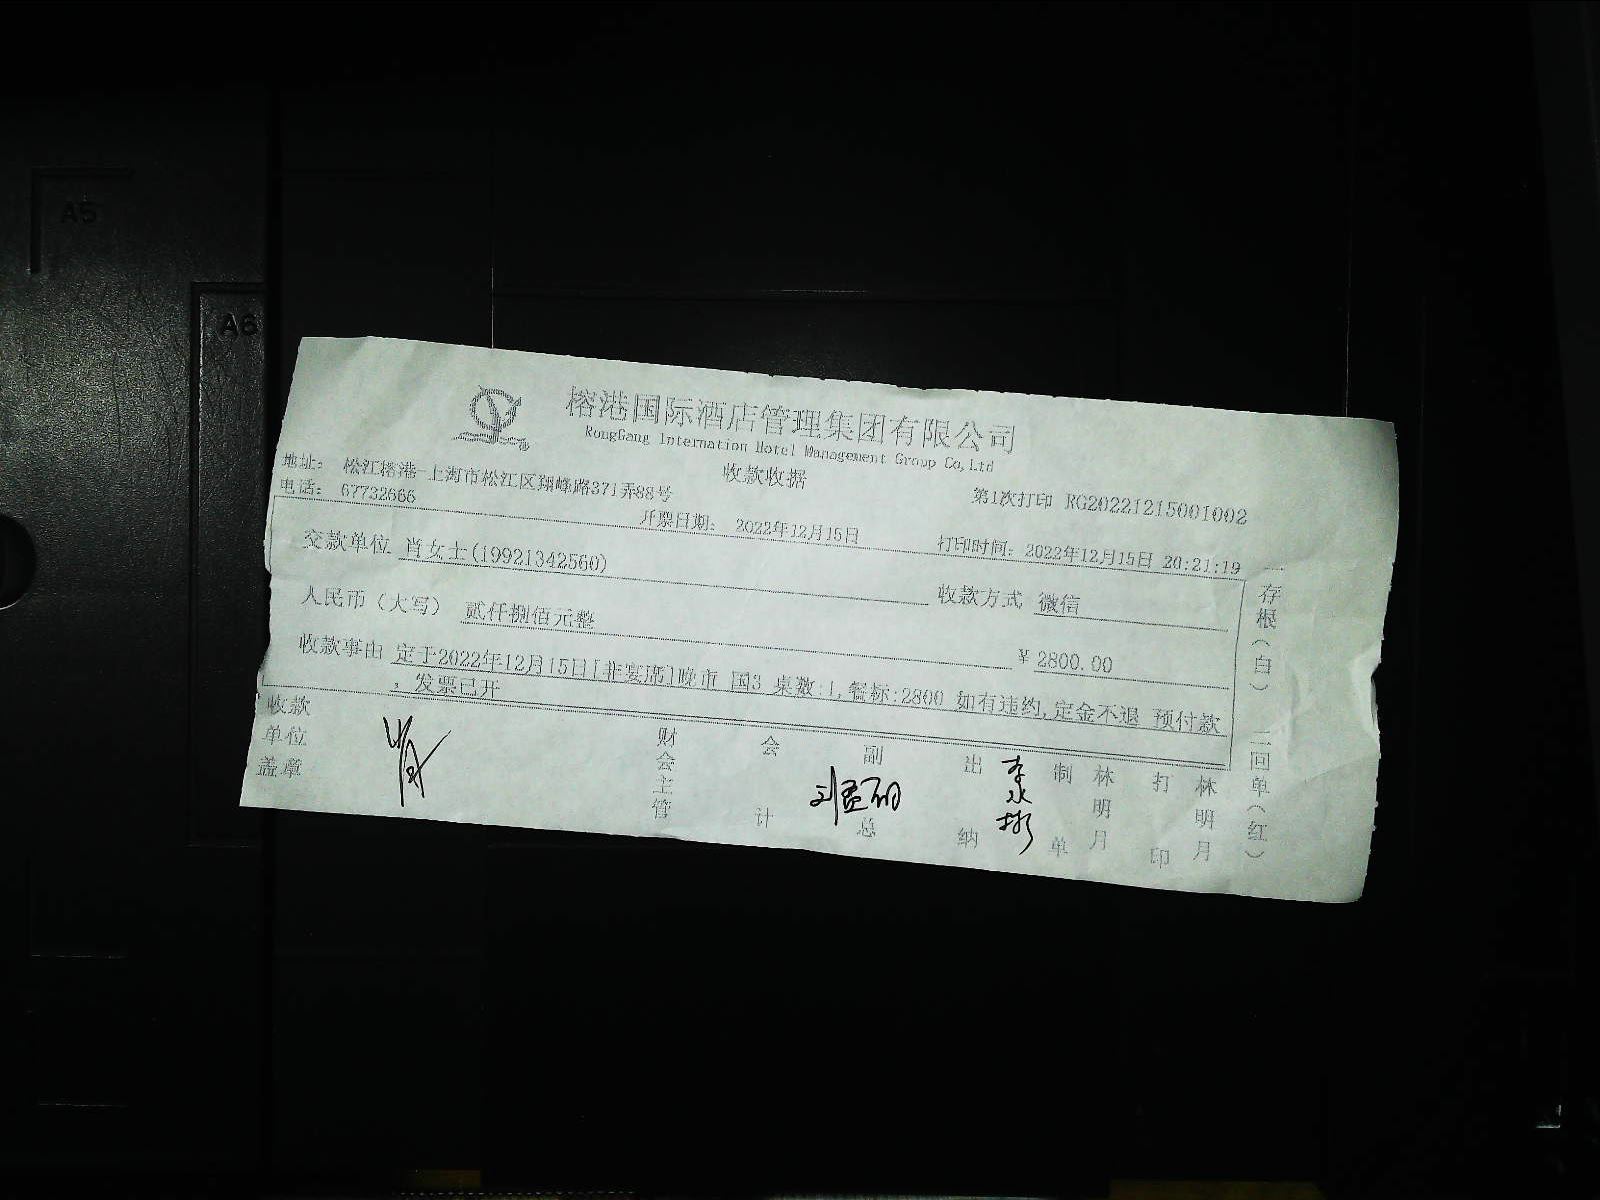 A5
A6
榕港国际酒店管理集团有限公司
RongGang Internation Hotel Management Group Co,Ltd
收款收据
地址： 松江榕港-上海市松江区翔峰路371弄88号
电话： 67732666
第1次打印 RG20221215001002
开票日期： 2022年12月15日
打印时间：2022年12月15日 20:21:19
交款单位 肖女士(19921342560)
收款方式 微信
人民币（大写） 贰仟捌佰元整
￥2800.00
收款事由 定于2022年12月15日[非宴席]晚市 国3 桌数:1,餐标:2800 如有违约,定金不退 预付款
，发票已开
收款单位盖章
肖
财会主管
会计
副总
出纳
李永彬
制单
林明月
打印
林明月
一存根（白） 二回单（红）